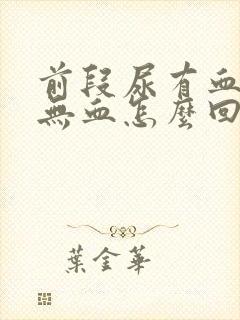 前段尿有血
無血怎麼回
葉金華